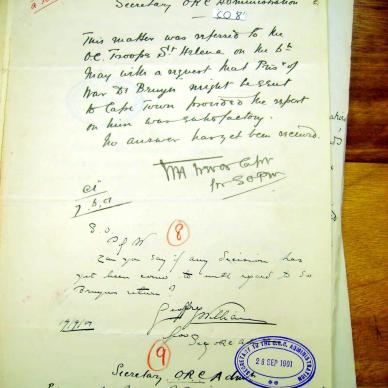 Secretary ORC Administration
508
This matter was referred to the
O.C. Troops St Helena on the 6th
May with a request that Pris^r of
War De Bruyn might be sent
to Cape Town provided the report
on him was satisfactory.
No answer has yet been received.
Capt
for S.O.P.W
7.6.01
8
S.O
P of W
Can you say if any decision has
yet been come to with regard to
Bruyns return?
Geoffry Williams
for Sec ORC
9
Secretary ORC Adm
SECRETARY TO THE O.R.C. ADMINISTRATION
26 SEP 1901